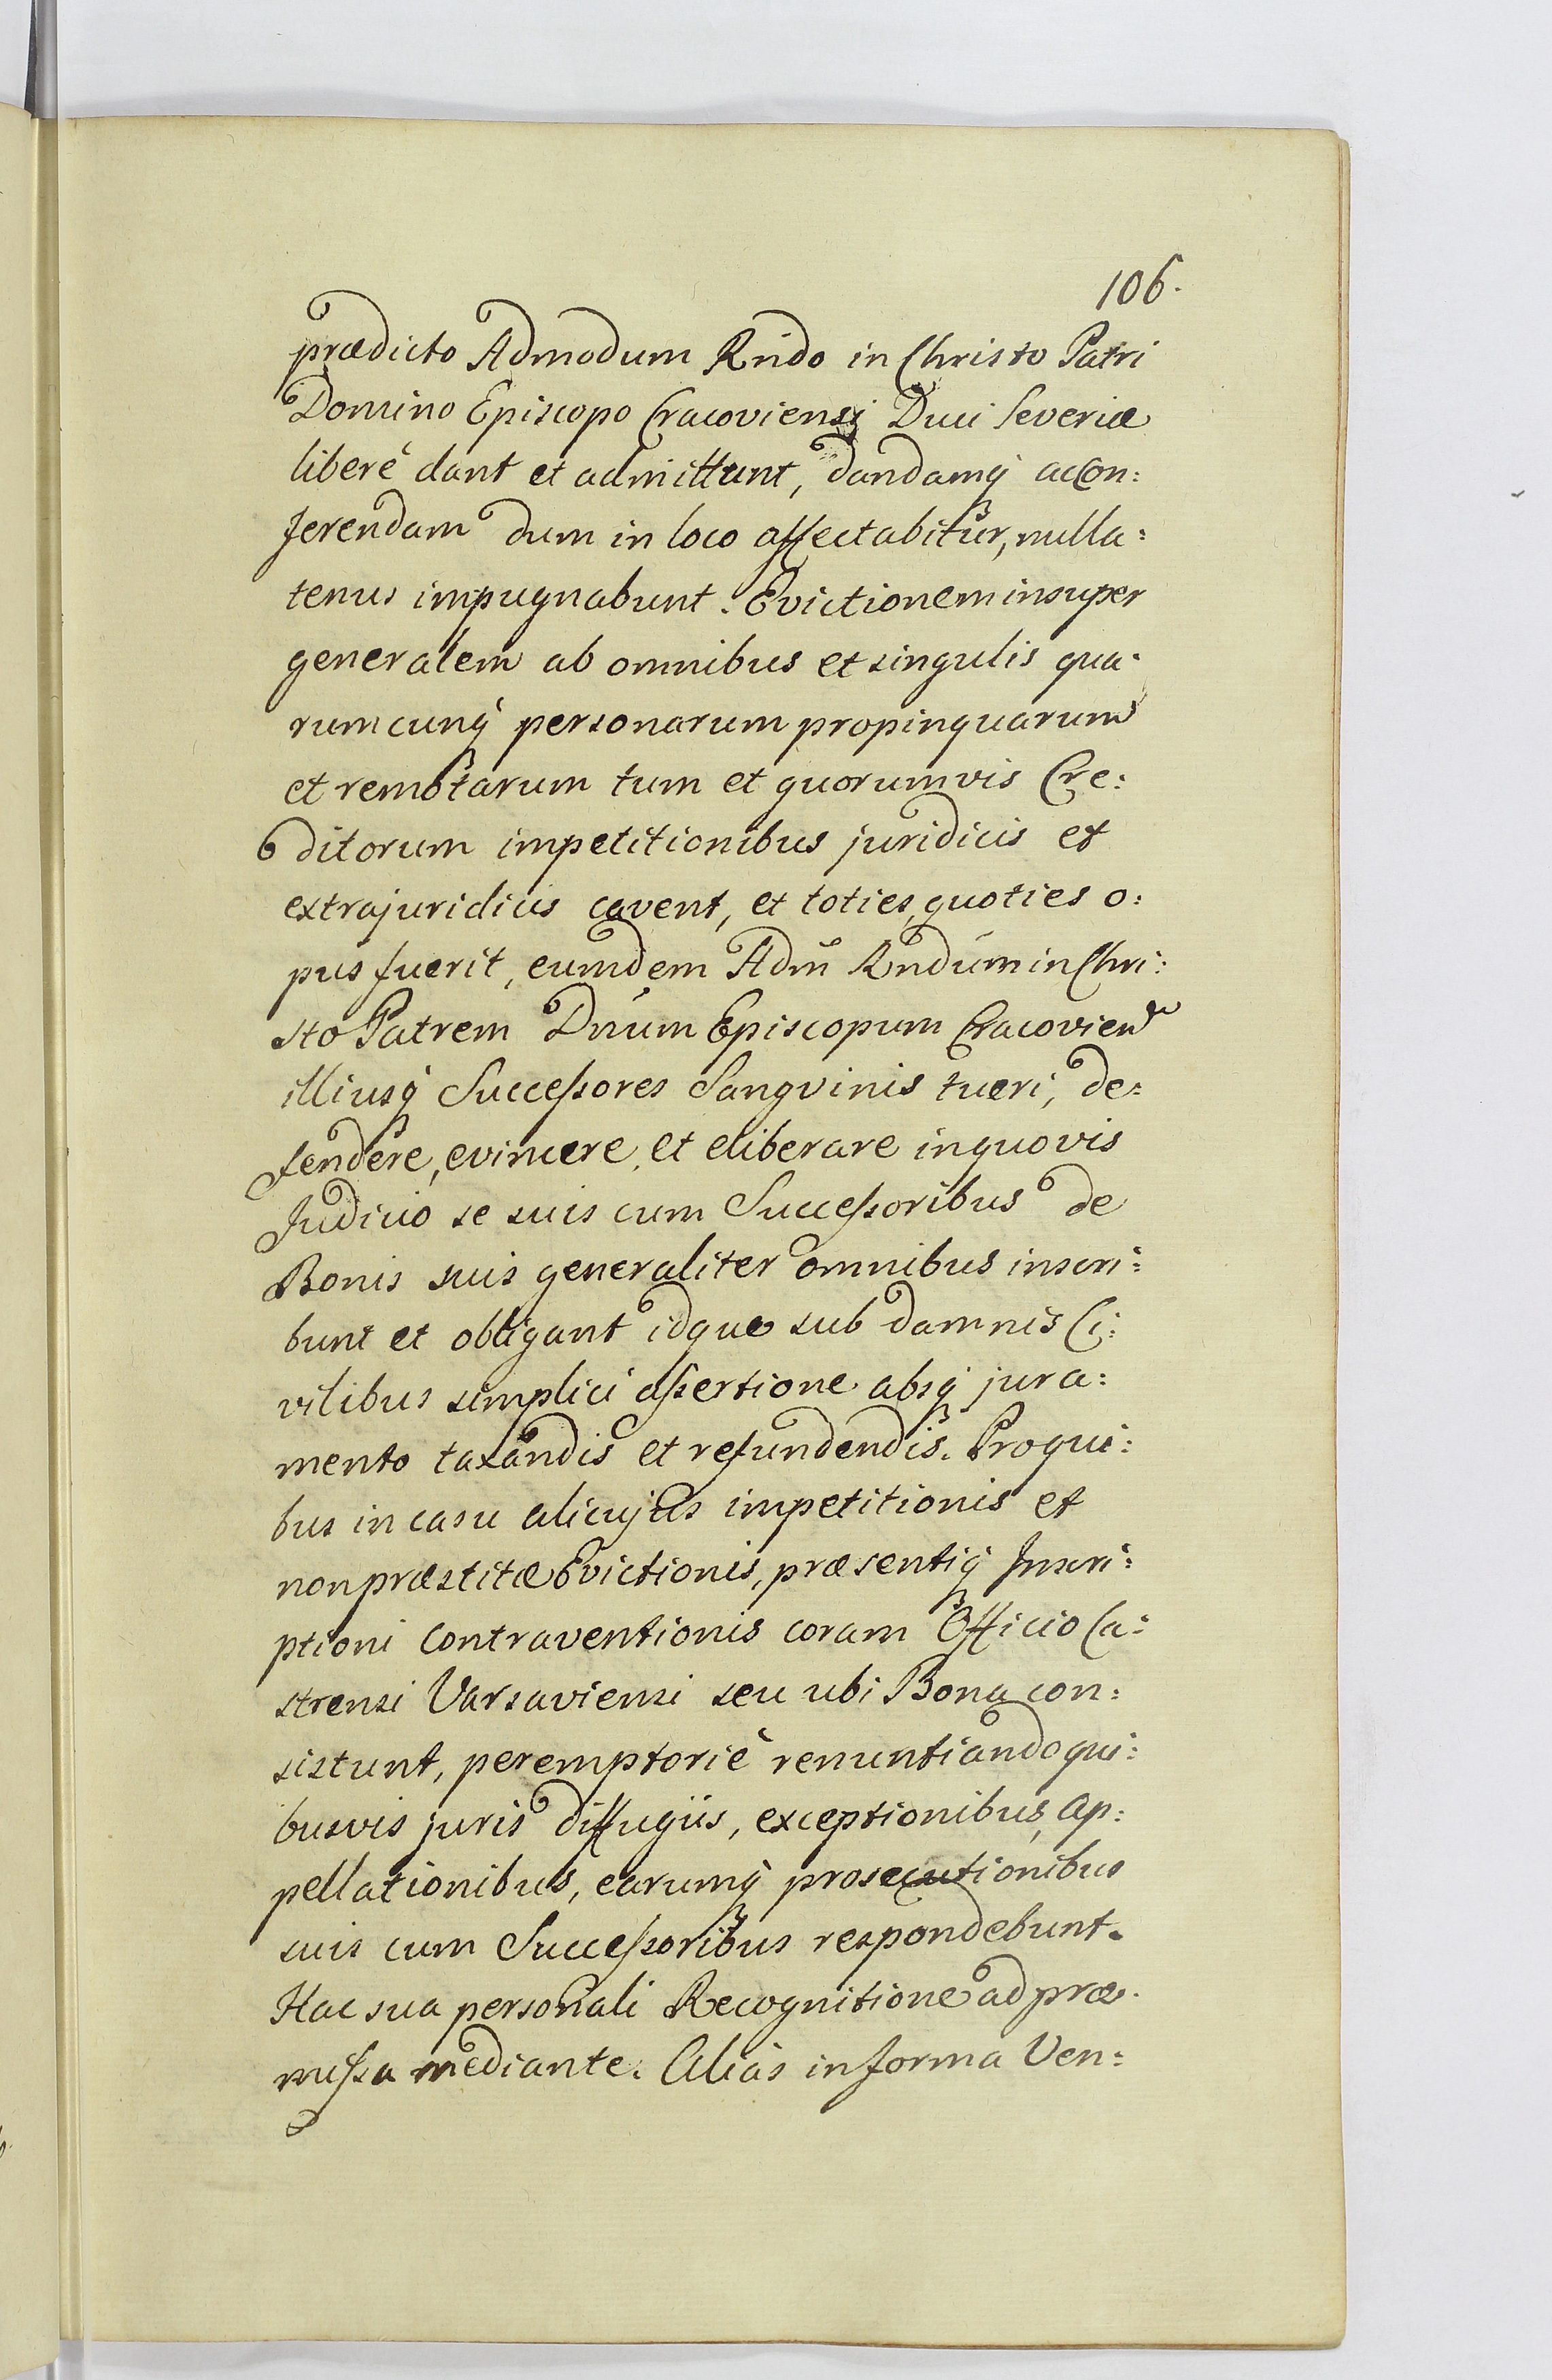 106.
prædicto Admodum Rndo in Christo Patri
Domino Episcopo Cracoviensi Duci Severiæ
liberè dant et admittunt, dandamq́ ac con:
ferendam dum in loco affectabitur, nulla:
tenus impugnabunt. Evictionem insuper
generalem ab omnibus et singulis qua:
rumcunq́ personarum propinquarum
et remotarum tum et quorumvis Cre:
ditorum impetitionibus juridicis et
extrajuridicis cavent, et toties, quoties o:
pus fuerit, eumdem Adm̃ Rndum in Chri:
sto Patrem Dnum Episcopum Cracovien
illiusq́ Successores Sangvinis tueri, de:
fendere, evincere, et eliberare in quovis
Judicio se suis cum Successoribus de
Bonis suis generaliter omnibus inscri:
bunt et obligant idque sub damnis Ci:
vilibus simplici assertione absq́ jura:
mento taxandis et refundendis. Pro qui:
bus in casu alicujus impetitionis et
non præstitæ Evictionis, præsentiq́ Inscri:
ptioni contraventionis coram Officio Ca:
strensi Varsaviensi seu ubi Bona con:
sistunt, peremptoriè renuntiando qui:
busvis juris diffugiis, exceptionibus, ap:
pellationibus, earumq́ prosecutionibus
suis cum Successoribus respondebunt.
Hac sua personali Recognitione ad præ:
missa mediante. Aliàs in forma Ven: